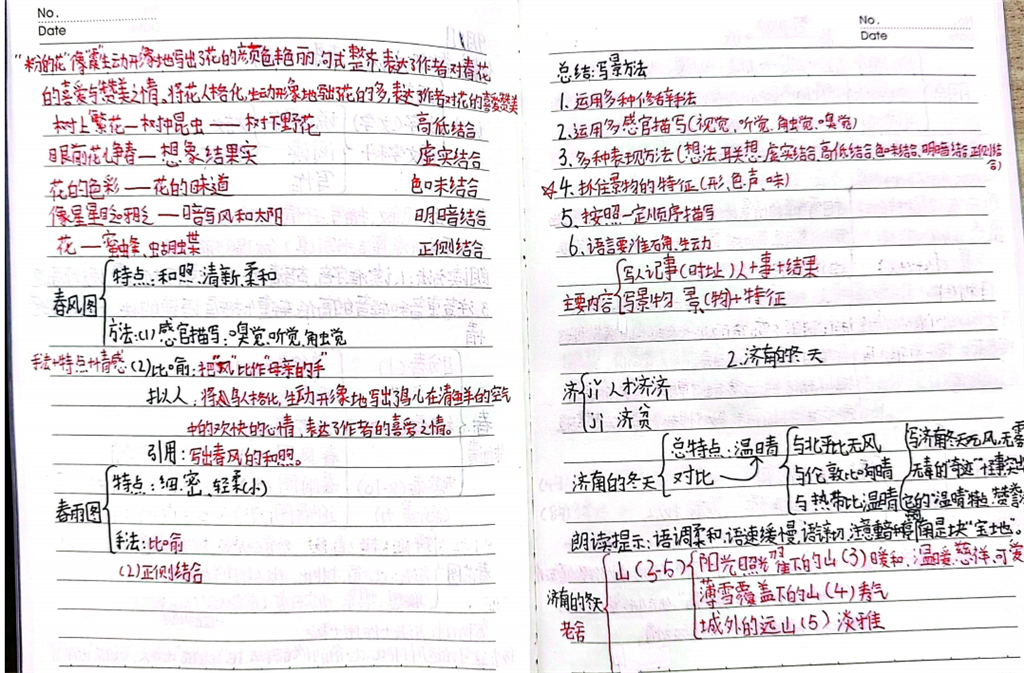 No.
Date
"粉的花"像"霞"生动形象地写出了花的颜色艳丽,句式整齐,表达了作者对春花
的喜爱与赞美之情、将花人格化,生动形象地写出了花的多,表达了作者对花的喜爱赞美
树上繁花—树中昆虫—树下野花 高低结合
眼前花儿争春—想象结果实 虚实结合
花的色彩——花的味道 色味结合
像星星眨呀眨——暗写风和太阳 明暗结合
花—蜜蜂、蝴蝶 正侧结合
春风图
特点:和煦.清新.柔和
方法:(1)感官描写:嗅觉.听觉.触觉
手法+特点+情感 (2)比喻:把"风"比作"母亲的手"
拟人:将鸟人格化,生动形象地写出鸟儿在清鲜的空气
中的欢快的心情,表达了作者的喜爱之情。
引用:写出春风的和煦。
春雨图
特点:细.密、轻柔(小)
手法:比喻
(2)正侧结合
No.
Date
总结:写景方法
1.运用多种修辞手法
2.运用多感官描写(视觉.听觉.触觉.嗅觉)
3.多种表现方法(想法.联想.虚实结合.高低结合.色味结合.明暗结合.正侧结合)
☆4.抓住景物的特征(形、色、声、味)
5.按照一定顺序描写
6.语言要准确.生动
主要内容
写人记事(时地)人+事+结果
写景物 景(物)+特征
2.济南的冬天
济
jǐ 人才济济
jì 济贫
济南的冬天
总特点:温晴
对比
与北平比无风
与伦敦比响晴
与热带比温晴
写济南冬天无风,无雾
无毒的"奇迹"
它的"温晴"
济南是块"宝地"。
朗读提示:语调柔和,语速缓慢,
济南的冬天
老舍
山(3-5)
阳光照耀下的山(3)暖和、温暖.慈祥,可爱
薄雪覆盖下的山(4)秀气
城外的远山(5)淡雅